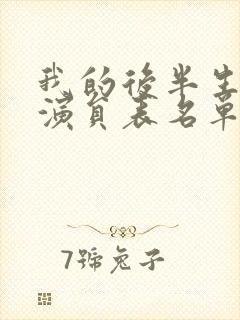 我的後半生
演員表名單
7號兔子